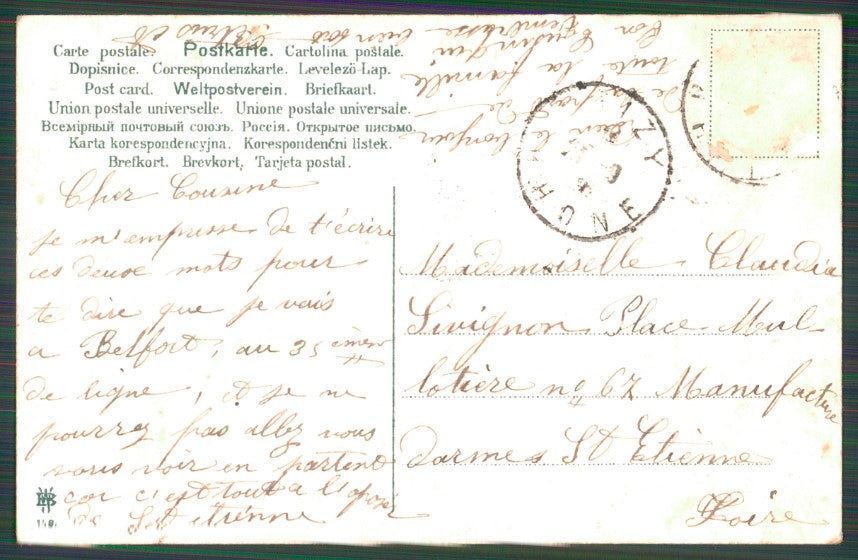 Carte postale. Postkarte. Cartolina postale.
Dopisnice. Correspondenzkarte. Levelező-Lap.
Post card. Weltpostverein. Briefkaart.
Union postale universelle. Unione postale universale.
Всемірный почтовый союзъ. Россія. Открытое письмо.
Karta korespondencyjna. Korespondenční lístek.
Brefkort. Brevkort. Tarjeta postal.
Cher Cousine
je m'empresse de t'écrire
ces deuse mots pour
te dire que je vais
a Belfort, au 35 ème
de ligne, et je ne
pourrez pas allez vous
voir en partent
car c'est tout a l'oposé
de St etienne
le bonjour
de ta part a
toute la famille
ton Cousin qui
t'embrasse
bien
Mademoiselle Claudia
Sivignon Place Mul-
lotière no 67 Manufacture
darmes St Etienne
Loire
148.